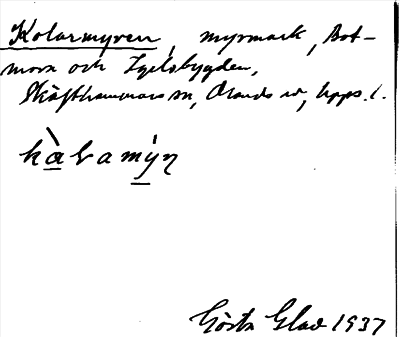 Kolarmyren, myrmark, Bot-
mora och Igelsbygden,
Skäfthammars sn, Ölands hd, Upps. l.
kàlamýn
Gösta Glad 1937